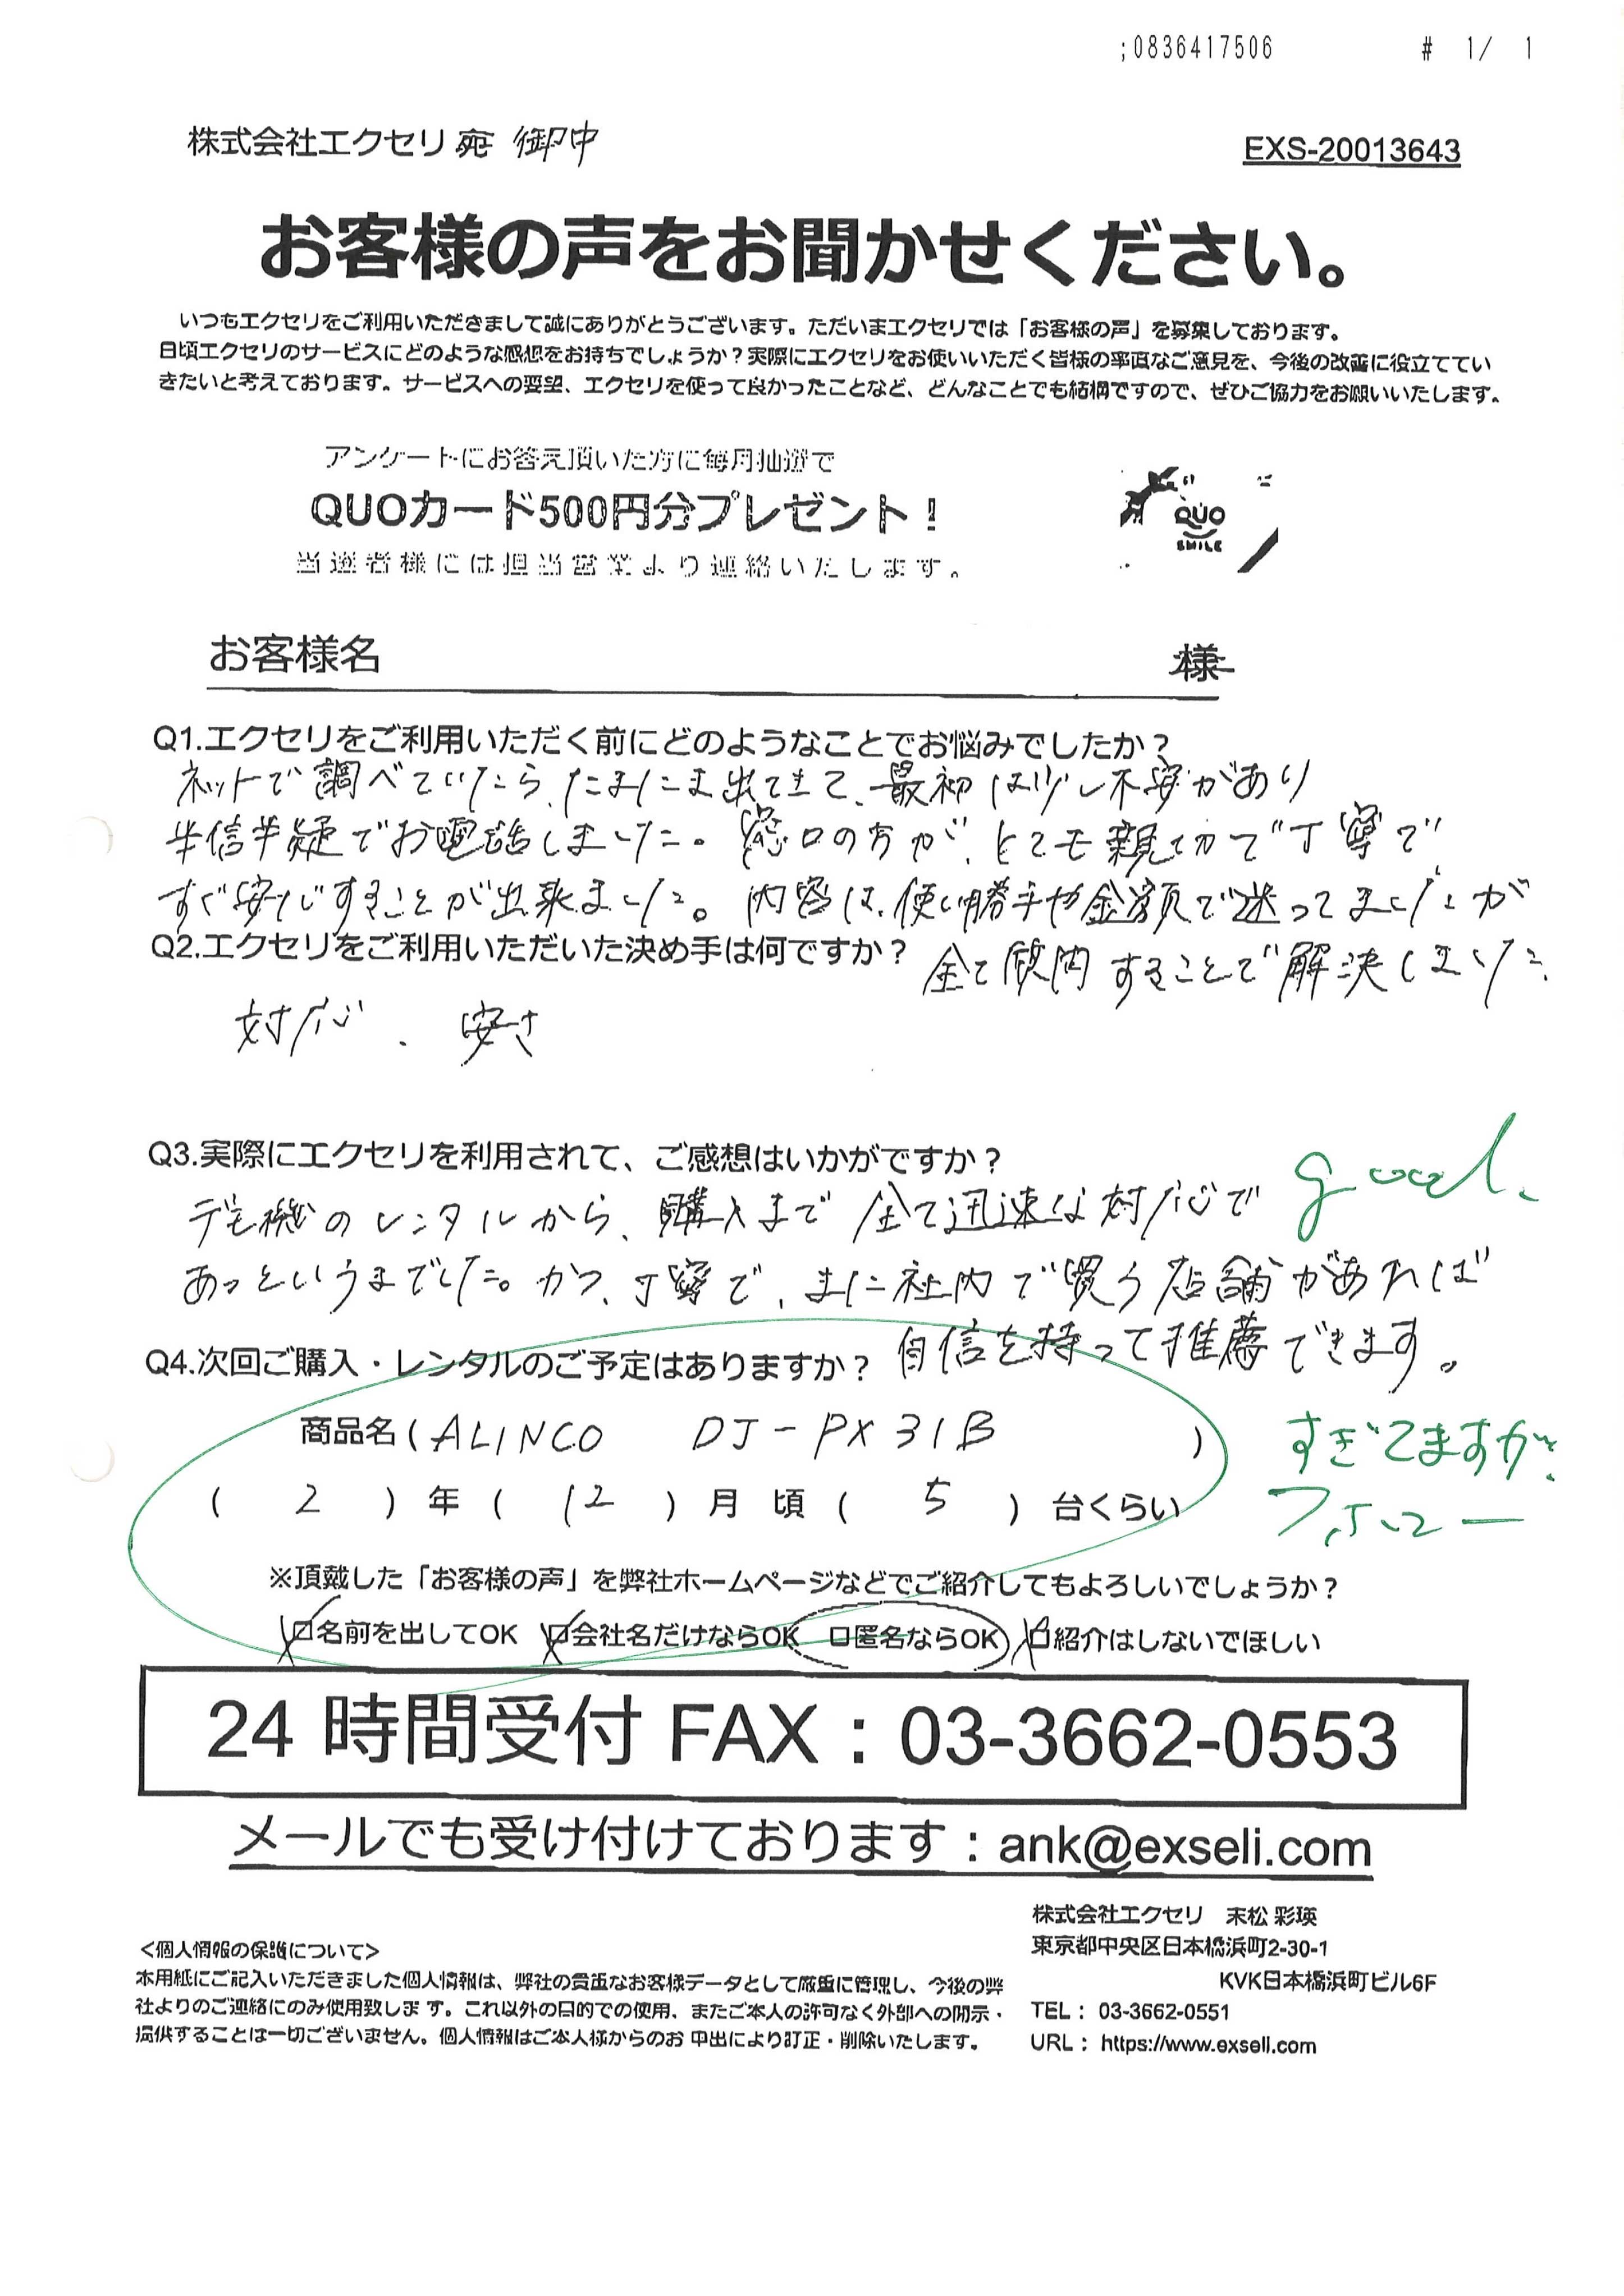 ;0836417506 # 1/ 1
株式会社エクセリ 宛 御中
EXS-20013643
お客様の声をお聞かせください。
いつもエクセリをご利用いただきまして誠にありがとうございます。ただいまエクセリでは「お客様の声」を募集しております。
日頃エクセリのサービスにどのような感想をお持ちでしょうか？実際にエクセリをお使いいただく皆様の率直なご意見を、今後の改善に役立ててい
きたいと考えております。サービスへの要望、エクセリを使って良かったことなど、どんなことでも結構ですので、ぜひご協力をお願いいたします。
アンケートにお答え頂いた方に毎月抽選で
QUOカード500円分プレゼント！
当選者様には担当営業より連絡いたします。
QUO
SMILE
お客様名 様
Q1.エクセリをご利用いただく前にどのようなことでお悩みでしたか？
ネットで調べていたら、たまたま出てきて、最初は少し不安があり
半信半疑でお電話しました。窓口の方が、とても親切で丁寧で
すぐ安心することが出来ました。内容は、使い勝手や金額で迷ってましたが
Q2.エクセリをご利用いただいた決め手は何ですか？
全て質問することで解決しました。
対応、安さ
Q3.実際にエクセリを利用されて、ご感想はいかがですか？
good.
デモ機のレンタルから、購入まで全て迅速な対応で
あっというまでした。かつ、丁寧で、また社内で買う店舗があれば
自信を持って推薦できます。
Q4.次回ご購入・レンタルのご予定はありますか？
商品名(ALINCO DJ-PX31B )
( 2 ) 年 ( 12 ) 月 頃 ( 5 ) 台くらい
すぎてますが、
フォロー
※頂戴した「お客様の声」を弊社ホームページなどでご紹介してもよろしいでしょうか？
□名前を出してOK □会社名だけならOK □匿名ならOK □紹介はしないでほしい
24 時間受付 FAX：03-3662-0553
メールでも受け付けております：ank@exseli.com
株式会社エクセリ 末松 彩瑛
東京都中央区日本橋浜町2-30-1
KVK日本橋浜町ビル6F
TEL： 03-3662-0551
URL： https://www.exseli.com
＜個人情報の保護について＞
本用紙にご記入いただきました個人情報は、弊社の貴重なお客様データとして厳重に管理し、今後の弊
社よりのご連絡にのみ使用致します。これ以外の目的での使用、またご本人の許可なく外部への開示・
提供することは一切ございません。個人情報はご本人様からのお申出により訂正・削除いたします。